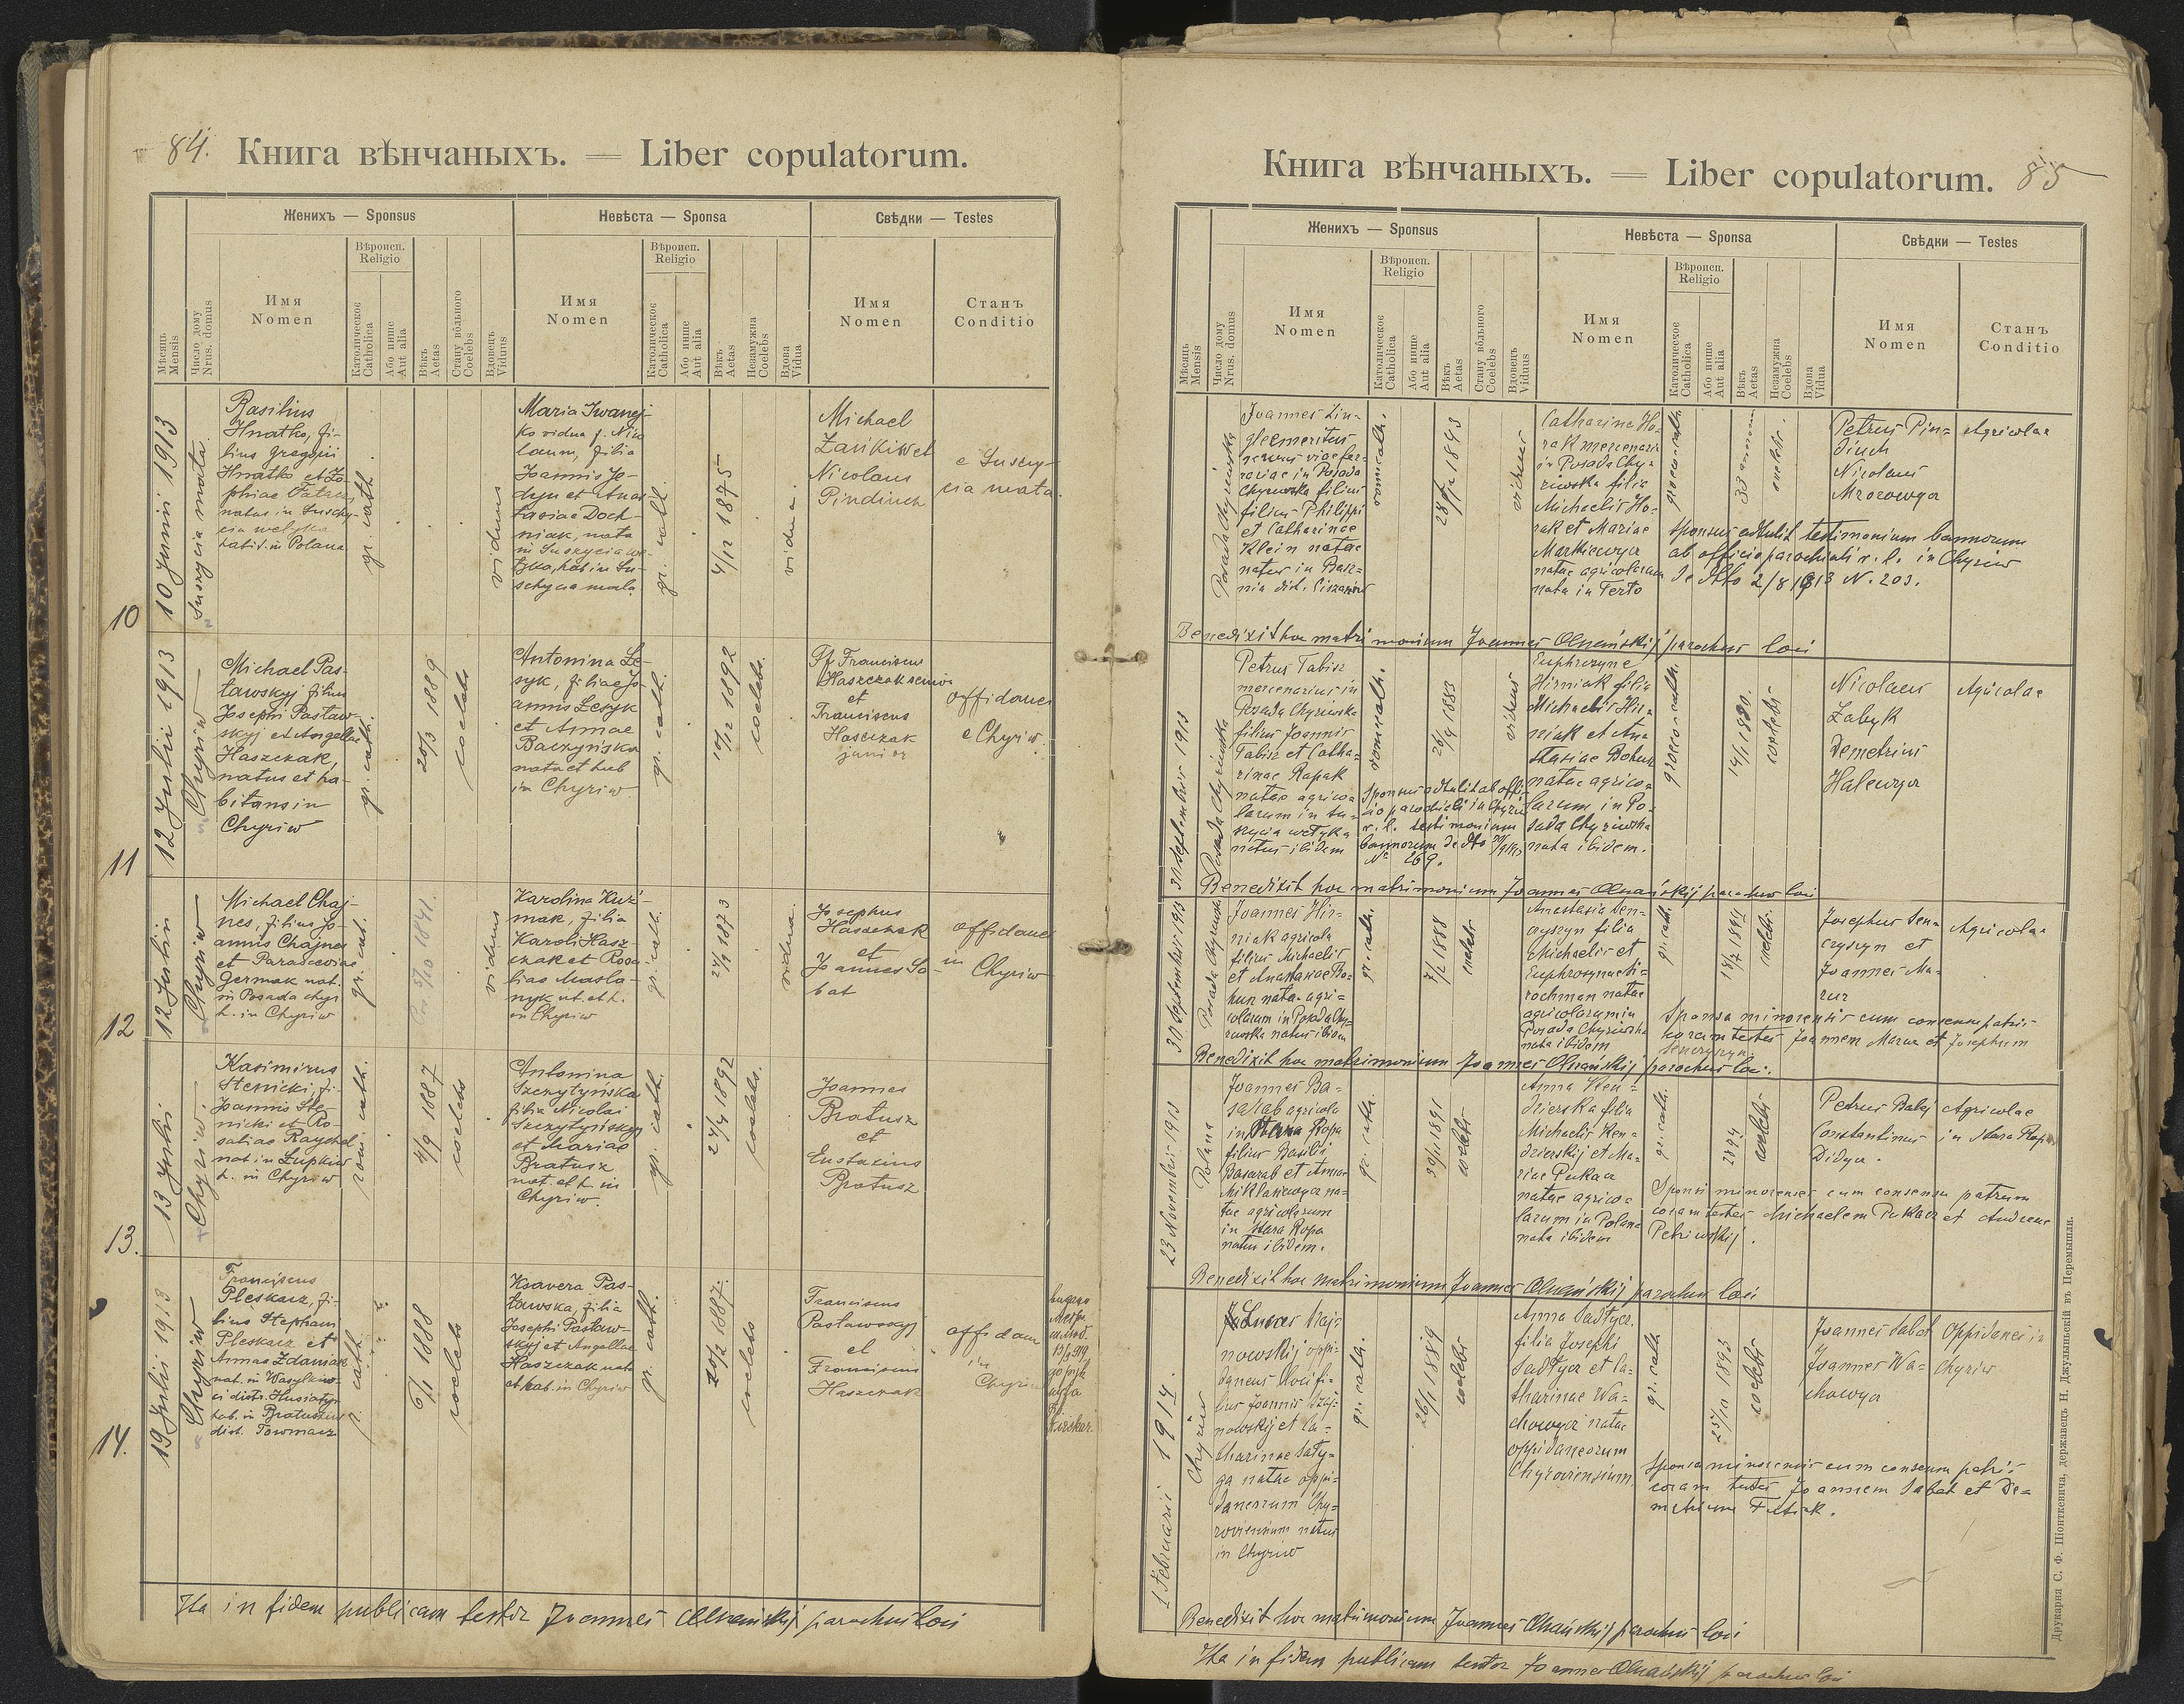 84.
Книга вѣнчаныхъ. — Liber copulatorum.
Женихъ — Sponsus
Невѣста — Sponsa
Свѣдки — Testes
Мѣсяць
Mensis
Число дому
Nrus. domus
Имя
Nomen
Вѣроисп.
Religio
Католическое
Catholica
Або инше
Aut alia
Вѣкъ
Aetas
Стану вôльного
Coelebs
Вдовець
Viduus
Имя
Nomen
Вѣроисп.
Religio
Католическое
Catholica
Або инше
Aut alia
Вѣкъ
Aetas
Незамужна
Coelebs
Вдова
Vidua
Имя
Nomen
Станъ
Conditio
10
10 Junii 1913
Suszycia mała
Basilius
Hnatko, fi-
lius Gregorii
Hnatko et Zo-
phiae
natus in Suszy-
cia welyka
habit. in Polana
gr. cath.
viduus
Maria Iwanej-
ko vidua p. Nico
laum, filia
Joannis Jo-
dyn et Anas
tasiae Doch-
niak, nata
in Suszycia we-
lyka, hab in Su-
szycia mala
gr. cath.
4/12 1875
vidua.
Michael
Zankiwet
Nicolaus
Pindiuch
e Suszy-
cia mała.
11
12 Julii 1913
Chyriw
Michael Pas-
tawskyj filius
Josephi Pastaw
skyj et Angellae
Haszczak,
natus et ha-
bitans in
Chyriw
gr. cath.
20/3 1889
coelebs
Antonina Le-
syk, filia Jo-
annis Lesyk
et Annae
Baczyńska
nata et hab
in Chyriw
gr. cath.
10/12 1892
coelebs.
Franciscus
Haszczak senior
et
Franciscus
Hasczzak
junior
offidanei
e Chyriw.
12
12 Julii
Chyriw
Michael Chaj-
nes, filius Jo-
annis Chajnes
et Parasceviae
Germak nat.
in Posada chyr
h. in Chyriw
gr. cat.
5/10 1841.
viduus
Karolina Kuź-
mak, filia
Karoli Hasz-
czak et Rosa-
liae Masla-
nyk nt. et h.
in Chyriw
gr. cath.
24/1 1873
vidua.
Josephus
Haszczak
et
Joannes Sa-
bat
offidanei
in Chyriw
13.
13 Julii
Chyriw.
Kasimirus
Stenicki, fi.
Joannis Ste-
nicki et Ro-
saliae Raychel
nat in Łupkiw
h. in Chyriw
rom. cath.
4/9 1887
coelebs
Antonina
Szczytyńska
filia Nicolai
Szczytyńskyj
et Mariae
Bratusz
nat. et h. in
Chyriw.
gr. cath.
24/4 1892
coelebs.
Joannes
Bratusz
et
Eustachius
Bratusz
14.
19 Julii 1913
Chyriw
Franciscus
Pleskacz, fi-
lius Stephani
Pleskacz et
Annae Zdaniak
nat. in Wasylkiw-
ci distr. Husiatyn
hab. in Bratuszi
dist. Towmacz
r. cath.
6/1 1888
coelebs
Ksavera Pas-
tawska, filia
Josephi Pastaw-
skyj et Angellae
Haszczak nat
et hab. in Chyriw
gr. cath.
20/2 1887.
coelebs
Franciscus
Pastawskyj
et
Franciscus
Haszczak
offidanei
in
Chyriw
Ita in fidem publicam testor Joannes Olnańskij parochus loci
Книга вѣнчаныхъ. — Liber copulatorum. 85
Женихъ — Sponsus
Невѣста — Sponsa
Свѣдки — Testes
Мѣсяць
Mensis
Число дому
Nrus. domus
Имя
Nomen
Вѣроисп.
Religio
Католическое
Catholica
Або инше
Aut alia
Вѣкъ
Aetas
Стану вôльного
Coelebs
Вдовець
Viduus
Имя
Nomen
Вѣроисп.
Religio
Католическое
Catholica
Або инше
Aut alia
Вѣкъ
Aetas
Незамужна
Coelebs
Вдова
Vidua
Имя
Nomen
Станъ
Conditio
Posada Chyriwska
Joannes Lin-
gl emeritus
servus viae fer-
rariae in Posada
Chyriwska filius
filius Philippi
et Catharinae
Klein natae
natus in Basz-
nia dist. Ciszaniw
rom cath.
28/ 1843
viduus
Catharina Ho-
rak mercenaria
in Posada Chy-
riwska filia
Michaelis Ho-
rak et Mariae
Markiewycz
natae agricolarum
nata in Terło
graeco-cath.
33 annorum
coelebs.
Petrus Pin-
diuch
Nicolaus
Mrozowycz
Agricolae
Sponsus adtulit testimonium bannorum
ab officio parochiali r. l. in Chyriw
de dtto 2/8 1913 N. 203.
Benedixit hoc matrimonium Joannes Olnańskij parochus loci
Posada Chyriwska
Petrus Tabisz
mercenarius in
Posada Chyriwska
filius Joannis
Tabisz et Catha-
rinae Rapak
natae agrico-
larum in Su-
szycia wełyka
natus ibidem
rom cath.
26/4 1883
viduus
Sponsus adtulit ab offi-
cio parochiali in Chyriw
r. l. testimonium
bannorum de dto
N° 269.
Euphrozyne
Hirniak filia
Michaelis Hir-
niak et Ana
stasiae Bohun
natae agrico-
larum in Po-
sada Chyriwska
nata ibidem.
graeco-cath.
14/1 1890.
coelebs
Nicolaus
Zabyk
Demetrius
Halewycz
Agricolae
Benedixit hoc matrimonium Joannes Olnańskij parochus loci
30 Septembris 1913
Posada Chyriwska
Joannes Hir-
niak agricola
filius Michaelis
et Anastasiae Bo-
hun natae agri-
colarum in Posada Chy-
riwska natus ibidem
gr. cath.
7/2 1888
coelebs
Anestasia Sen-
czyszyn filia
Michaelis et
Euphrosynae Ti-
rochman natae
agricolarum in
Posada Chyriwska
nata ibidem
gr. cath.
18/7 1894
coelebs.
Josephus Sen-
czyszyn et
Joannes Ma-
zur
Agricolae
Sponsa minorensis cum consensu patris
coram testes Joannem Mazur et Josephum
Senczyszyn
Benedixit hoc matrimonium Joannes Olnańskij parochus loci.
23 Novembris 1913
Polana
Joannes Ba-
sarab agricola
in Stara Ropa
filius Basilii
Basarab et Annae
Miklasiewycz na-
tae agricolarum
in Stara Ropa
natus ibidem.
gr. cath.
30/1 1891
coelebs
Anna Ken-
dzierska filia
Michaelis Ken-
dzierskij et Ma-
riae Pukacz
natae agrico-
larum in Polana
nata ibidem
gr. cath.
coelebs
Petrus Babij
Constantinus
Didycz.
Agricolae
in Stara Ropa
Sponsi minorenses cum consensu patrum
coram testes Michaelem Pukacz et Andream
Petriwskij.
Benedixit hoc matrimonium Joannes Olnańskij parochus loci
1 Februarii 1914.
Chyriw
Lucas Szaj-
nowskij oppi-
daneus loci fi-
lius Joannis Szaj-
nowskij et Ca-
tharinae Saty-
ga natae oppi-
daneorum Chy-
roviensium natus
in Chyriw
gr. cath.
26/1 1889
coelebs
Anna Sadłycz.
filia Josephi
Sadłycz et Ca-
tharinae Wa-
chowycz natae
oppidaneorum
Chyroviensium.
gr. cath.
25/10 1893
coelebs
Joannes Sabat
Joannes Wa-
chowycz
Oppidanei in
Chyriw
Sponsa minorensis cum consensu patris
coram testes Joannem Sabat et De-
metrium
Benedixit hoc matrimonium Joannes Olnańskij parochus loci
Ita in fidem publicam testor Joannes Olnańskij parochus loci
Друкарня С. Ф. Піонткевича, державець Н. Джулыньскій въ Перемышли.